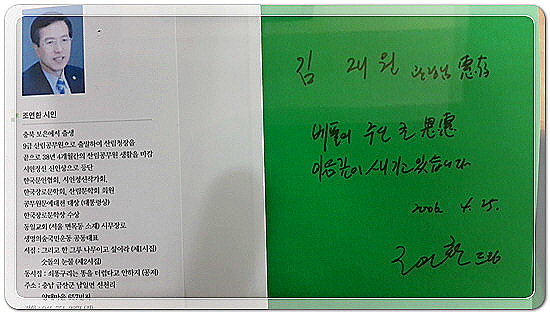 조연환 시인
충북 보은에서 출생
9급 산림공무원으로 출발하여 산림청장을
끝으로 38년 4개월간의 산림공무원 생활을 마감
시인정신 신인상으로 등단
한국문인협회, 시인정신작가회,
한국장로문학회, 산림문학회 회원
공무원문예대전 대상 (대통령상)
한국장로문학상 수상
동일교회 (서울 면목동 소재) 시무장로
생명의숲국민운동 공동대표
시집 : 그리고 한 그루 나무이고 싶어라 (제1시집)
숫돌의 눈물 (제2시집)
동시집 : 쇠똥구리는 똥을 더럽다고 안하지 (공저)
주소 : 충남 금산군 남일면 신천리
김 재원 惠存
베풀어 주신 큰 恩惠
마음깊이 새기고 있습니다
2006. 4. 25.
조연환 드림